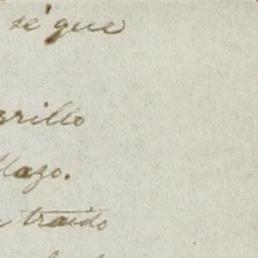 sé que
rrillo
llazo.
traido